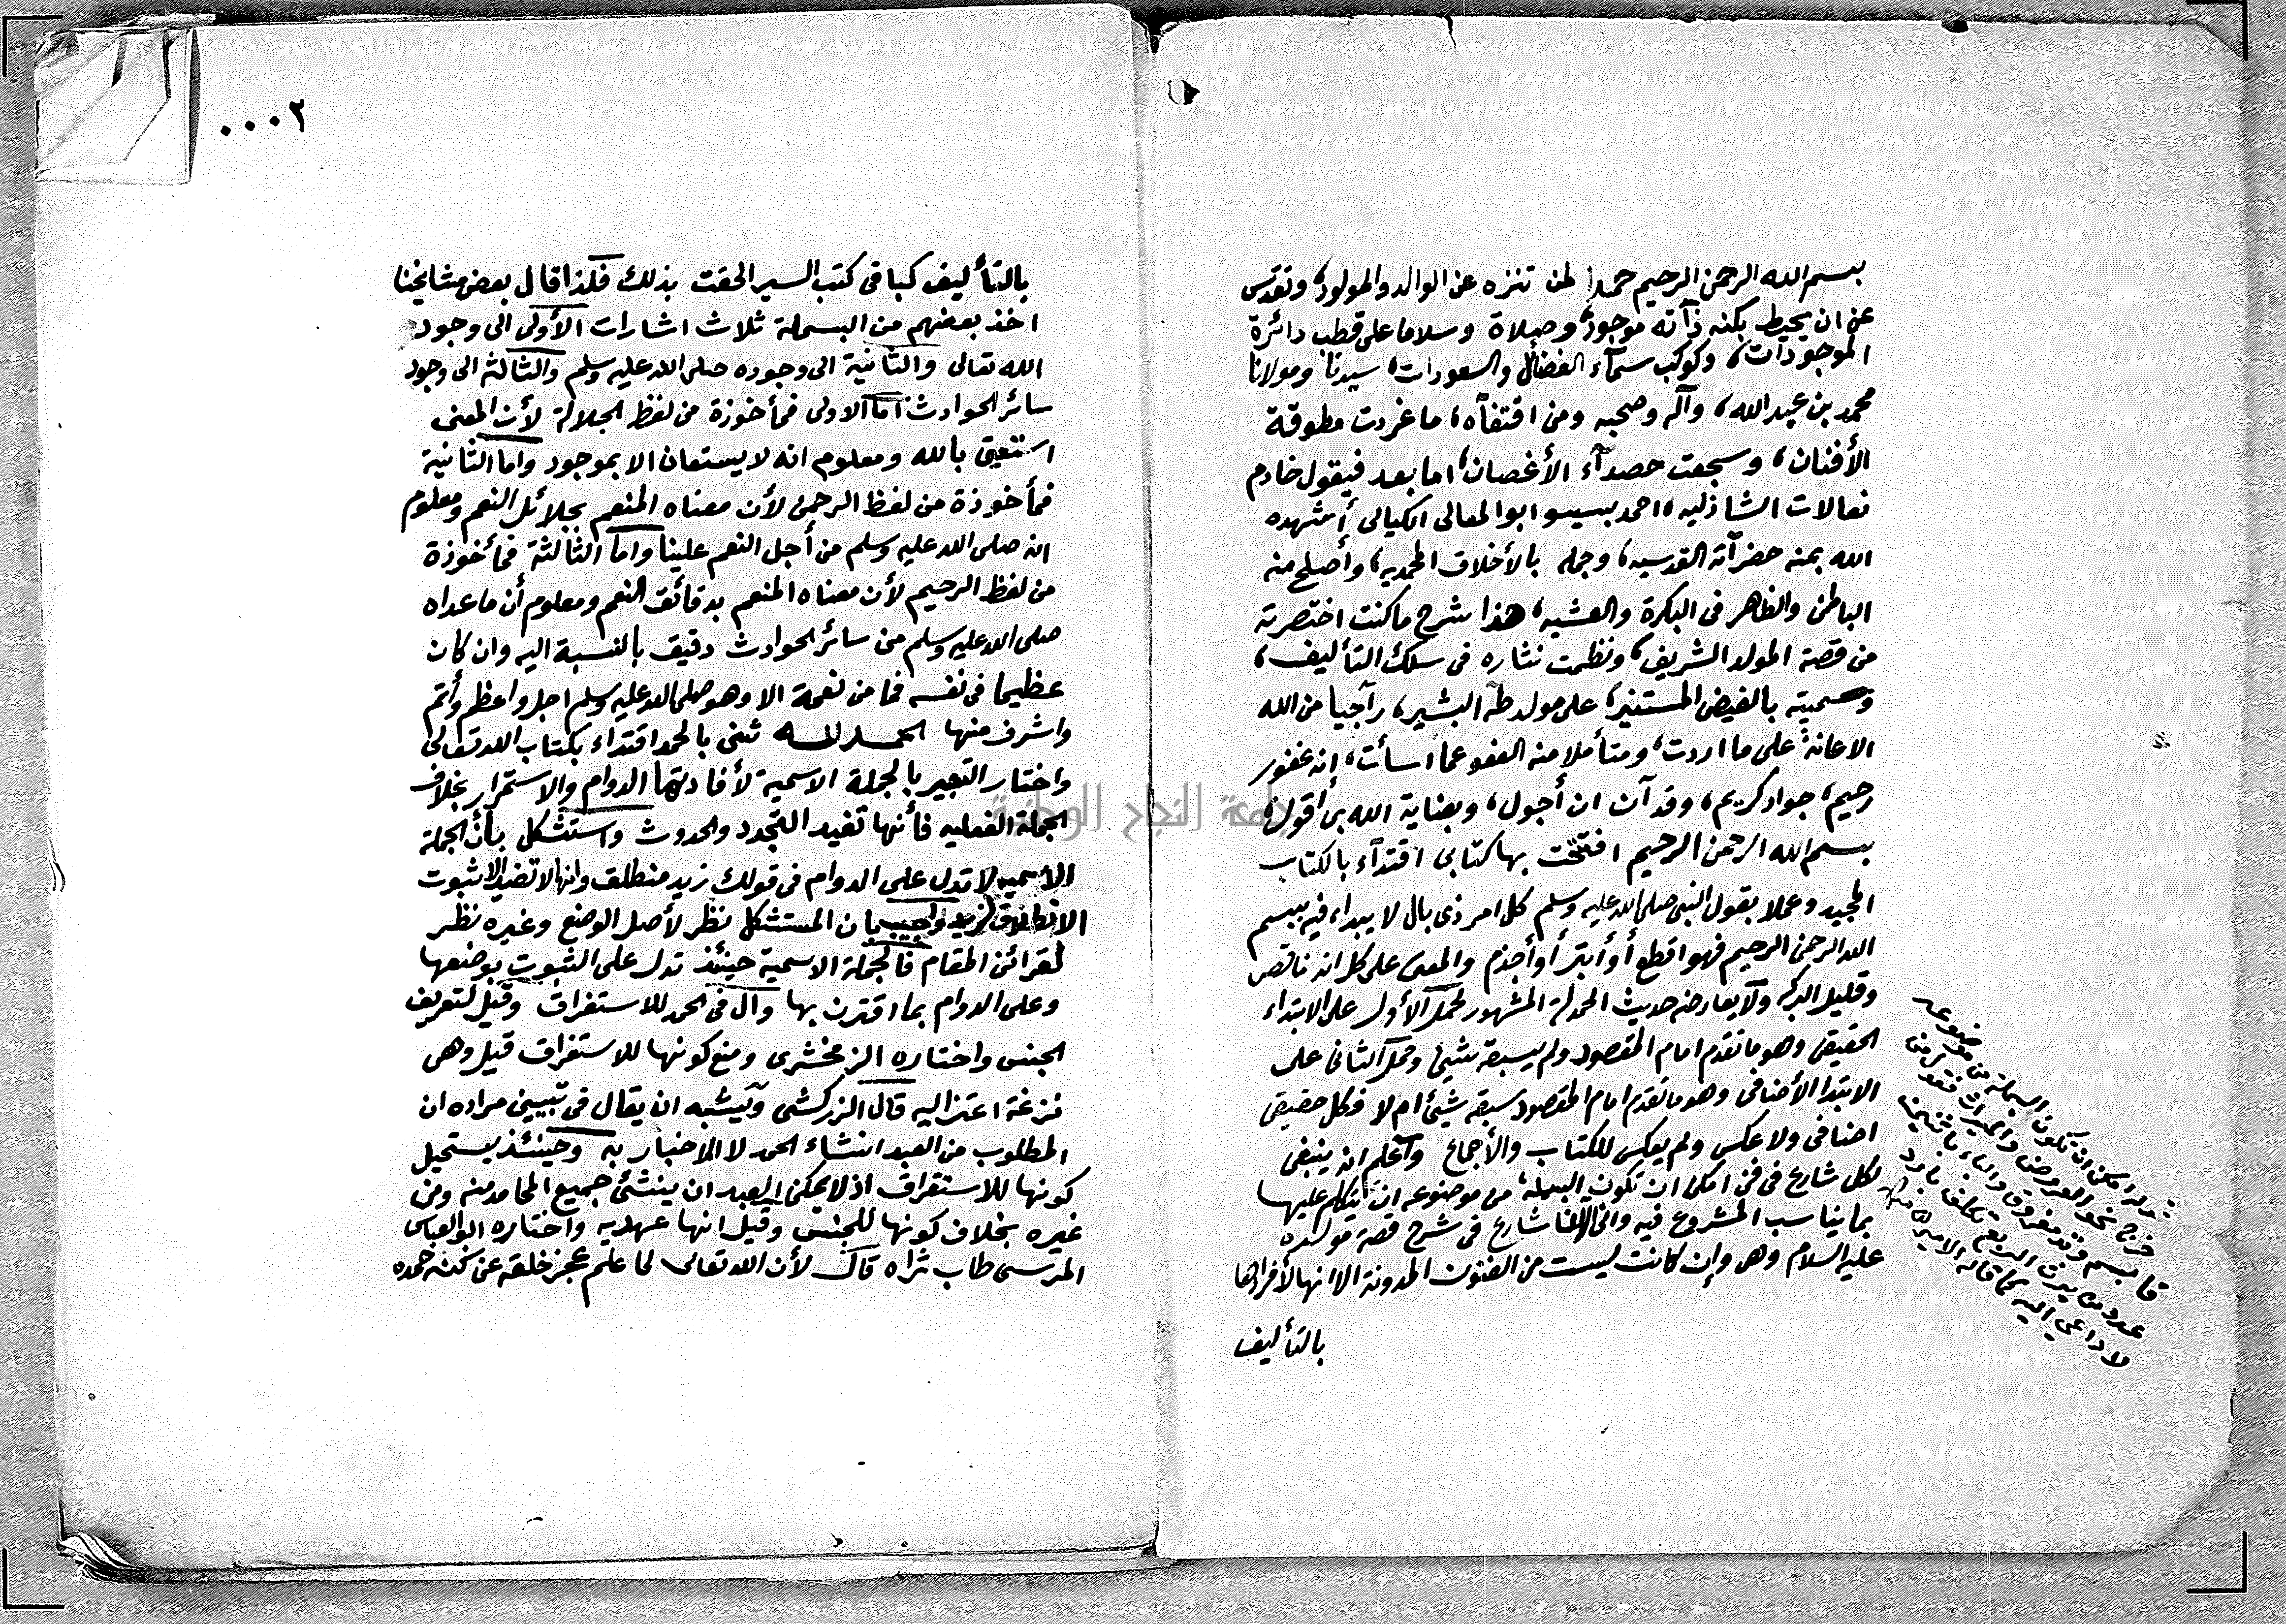 بسم الله الرحمن الرحيم حمدا لمن تنزه عن الوالد والمولود، وتقدس
عن ان يحيط بكنه ذآته موجود، وصلاة وسلاما على قطب دائرة
الموجودات، وكوكب سمآء الفضائل والسعودات، سيدنا ومولانا
محمد بن عبد الله، وآله وصحبه ومن اقتفآه، ما غردت مطوقة
الأفنان، وسجعت حصدآء الأغصان، اما بعد فيقول خادم
نعالات الشاذليه، احمد بسيسو ابو المعالى الكيالى أشهده
الله بمنه حضرآته القدسيه، وجمله بالأخلاق المحمديه، وأصلح منه
الباطن والظاهر فى البكرة والعشيه، هذا شرح ما كنت اختصرته
من قصة المولد الشريف، ونظمت نثاره فى سلك التأليف،
وسميته بالفيض المستنير، على مولد طه البشير، رآجيا من الله
الاعانة على ما اردت، ومتأملا منه العفو عما اسأت، إنه غفور
رحيم، جواد كريم، وقد آن ان أجول، وبعناية الله بى أقول،
بسم الله الرحمن الرحيم افتتحت بها كتابى اقتدآء بالكتاب
المجيد وعملا بقول النبى صلى الله عليه وسلم كل امر ذى بال لا يبداء فيه ببسم
الله الرحمن الرحيم فهو اقطع أو أبتر أو أجذم والمعنى على كل انه ناقص
وقليل البركه ولآ يعارضه حديث الحمدلة المشهور لحمل الأول على الابتداء
الحقيقى وهو ما تقدم امام المقصود ولم يسبقه شيئ وحمل الثانى على
الابتدا الأضافى وهو ما تقدم امام المقصود سبقه شيئ ام لا فكل حقيقى
اضافى ولا عكس ولم يعكس للكتاب والأجماع وآعلم انه ينبغى
لكل شارع فى فن امكن ان تكون البسملة من موضوعه ان يتكلم عليها
بما يناسب المشروع فيه وانى الآن شارع فى شرح قصة مولده
عليه السلام وهى وإن كانت ليست من الفنون المدونة الا انها لأفرادها
بالتأليف
ان تكون البسملة من موضوعه
خرج نحو العروض والميراث
لا داعي اليه كما قاله الامير
٠٠٠٢
بالتأليف كما فى كتب السير الحقت بذلك فلذا قال بعض مشايخنا
اخذ بعضهم من البسملة ثلاث اشارات الأولى الى وجود
الله تعالى والثانية الى وجوده صلى الله عليه وسلم والثالثة الى وجود
سائر الحوادث اما الاولى فمأخوذة من لفظ الجلالة لأن المعنى
استعين بالله ومعلوم انه لا يستعان الا بموجود واما الثانية
فمأخوذة من لفظ الرحمن لأن معناه المنعم بجلائل النعم ومعلوم
انه صلى الله عليه وسلم من أجل النعم علينا واما الثالثة فمأخوذة
من لفظ الرحيم لأن معناه المنعم بدقائق النعم ومعلوم أن ما عداه
صلى الله عليه وسلم من سائر الحوادث دقيق بالنسبة اليه وان كان
عظيما فى نفسه فما من نعمة الا وهو صلى الله عليه وسلم اجل واعظم وأتم
واشرف منها الحمد لله ثنى بالحمد اقتداء بكتاب الله تعالى
واختار التعبير بالجملة الاسمية لأفادتها الدوام والاستمرار بخلاف
الجملة الفعليه فأنها تفيد التجدد والحدوث واستشكل بأن الجملة
الاسميه لا تدل على الدوام فى قولك زيد منطلق وانها لا تفيد الا ثبوت
الانطلاق لزيد واجيب بان المستشكل نظر لأصل الوضع وغيره نظر
لقرائن المقام فالجملة الاسمية حينئذ تدل على الثبوت بوضعها
وعلى الدوام بما اقترن بها وال فى الحمد للاستغراق وقيل لتعريف
الجنس واختاره الزمخشرى ومنع كونها للاستغراق قيل وهى
نزغة اعتزاليه قال الزركشى ويشبه ان يقال فى تبيين مراده ان
المطلوب من العبد انشاء الحمد لا الاخبار به وحينئذ يستحيل
كونها للاستغراق اذ لا يمكن العبد ان ينشئ جميع المحامد منه ومن
غيره بخلاف كونها للجنس وقيل انها عهديه واختاره ابو العباس
المرسى طاب ثراه قال لأن الله تعالى لما علم عجز خلقه عن كنه حمده
جامعة النجاح الوطنية